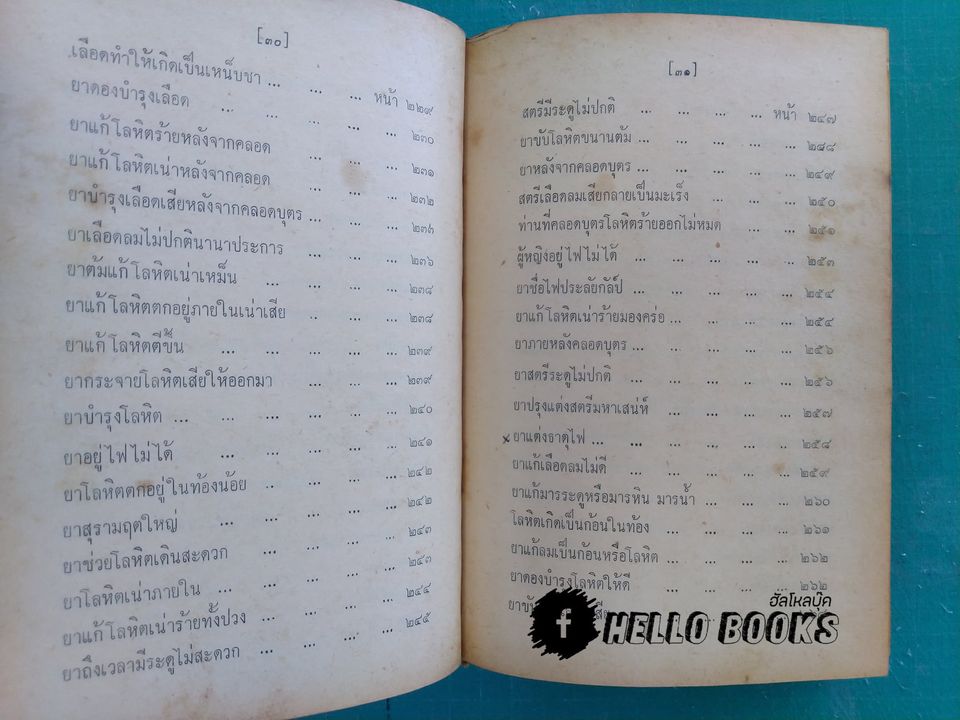 [๓๐]
เลือดทำให้เกิดเป็นเหน็บชา ... ... ... หน้า ๒๒๙
ยาดองบำรุงเลือด ... ... ... ... ๒๓๐
ยาแก้โลหิตร้ายหลังจากคลอด ... ... ... ๒๓๑
ยาแก้โลหิตเน่าหลังจากคลอด ... ... ... ๒๓๒
ยาบำรุงเลือดเสียหลังจากคลอดบุตร ... ... ... ๒๓๓
ยาเลือดลมไม่ปกตินานาประการ ... ... ... ๒๓๖
ยาต้มแก้โลหิตเน่าเหม็น ... ... ... ๒๓๘
ยาแก้โลหิตตกอยู่ภายในเน่าเสีย .. ... ... ๒๓๘
ยาแก้โลหิตตีขึ้น ... ... ... ... ๒๓๙
ยากระจายโลหิตเสียให้ออกมา ... ... ... ๒๓๙
ยาบำรุงโลหิต ... ... ... ... ... ๒๔๐
ยาอยู่ไฟไม่ได้ ... ... ... ... ๒๔๑
ยาโลหิตตกอยู่ในท้องน้อย .. ... ... ... ๒๔๒
ยาสุรามฤตใหญ่ ... ... ... ... ๒๔๒
ยาช่วยโลหิตเดินสะดวก ... ... ... ... ๒๔๓
ยาโลหิตเน่าภายใน ... ... ... ... ๒๔๓
ยาแก้โลหิตเน่าร้ายทั้งปวง ... ... ... ๒๔๔
ยาถึงเวลามีระดูไม่สะดวก ... ... ... ... ๒๔๕
[๓๑]
สตรีมีระดูไม่ปกติ ... ... ... ... หน้า ๒๔๗
ยาขับโลหิตขนานต้ม ... ... ... ... ... ๒๔๘
ยาหลังจากคลอดบุตร ... ... ... ... ... ๒๔๙
สตรีเลือดลมเสียกลายเป็นมะเร็ง ... ... ... ๒๕๐
ท่านที่คลอดบุตรโลหิตร้ายออกไม่หมด ... ... ... ๒๕๑
ผู้หญิงอยู่ไฟไม่ได้ ... ... ... ... ... ๒๕๓
ยาชื่อไฟประลัยกัลป์ ... ... ... ... ... ๒๕๔
ยาแก้โลหิตเน่าร้ายมองคร่อ ... ... ... ... ๒๕๔
ยาภายหลังคลอดบุตร ... ... ... ... ... ๒๕๖
ยาสตรีระดูไม่ปกติ ... ... ... ... ... ๒๕๖
ยาปรุงแต่งสตรีมหาเสน่ห์ ... ... ... ... ๒๕๗
x ยาแต่งธาตุไฟ ... ... ... ... .. ๒๕๘
ยาแก้เลือดลมไม่ดี ... ... ... ... .. ๒๕๙
ยาแก้มารระดูหรือมารหิน มารน้ำ ... ... ... .. ๒๖๐
โลหิตเกิดเป็นก้อนในท้อง ... ... ... ... ๒๖๑
ยาแก้ลมเป็นก้อนหรือโลหิต ... ... ... ... ๒๖๒
ยาดองบำรุงโลหิตให้ดี ... ... ... ... ๒๖๒
ฮัลโหลบุ๊ค
f HELLO BOOKS